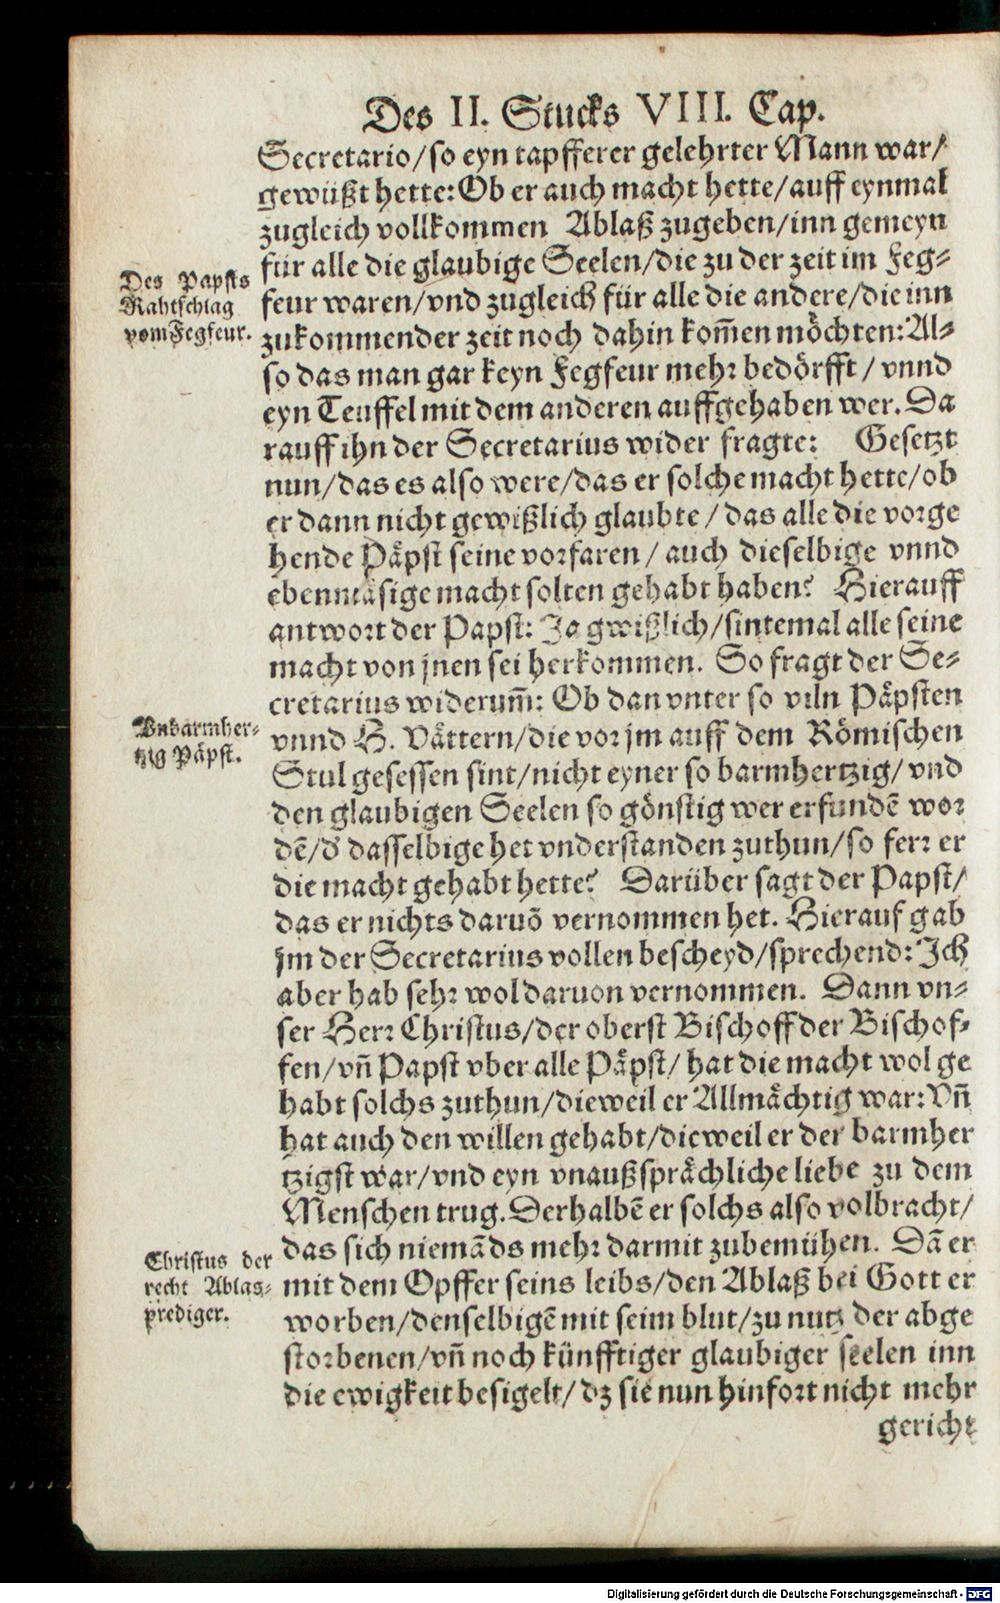 Des II. Stucks VIII. Cap.
Secretario/so eyn tapfferer gelehrter Mann war/
gewüßt hette: Ob er auch macht hette/auff eynmal
zugleich vollkommen Ablaß zugeben/inn gemeyn
für alle die glaubige Seelen/die zu der zeit im Feg-
feur waren/vnd zugleich für alle die andere/die inn
zukommender zeit noch dahin kom̄en möchten: Al-
so das man gar keyn Fegfeur mehr bedörfft/ vnnd
eyn Teuffel mit dem anderen auffgehaben wer. Da
rauff ihn der Secretarius wider fragte: Gesetzt
nun/das es also were/das er solche macht hette/ob
er dann nicht gewißlich glaubte/das alle die vorge
hende Päpst seine vorfaren/ auch dieselbige vnnd
ebenmäsige macht solten gehabt haben? Hierauff
antwort der Papst: Ja gwißlich/sintemal alle seine
macht von jnen sei herkommen. So fragt der Se-
cretarius widerum̄: Ob dan vnter so viln Päpsten
vnnd H. Vättern/die vor jm auff dem Römischen
Stul gesessen sint/nicht eyner so barmhertzig/ vnd
den glaubigen Seelen so gönstig wer erfundē wor
dē/d' dasselbige het vnderstanden zuthun/so ferr er
die macht gehabt hette? Darüber sagt der Papst/
das er nichts daruō vernommen het. Hierauf gab
jm der Secretarius vollen bescheyd/sprechend: Ich
aber hab sehr wol daruon vernommen. Dann vn-
ser Herr Christus/der oberst Bischoff der Bischof-
fen/vn̄ Papst vber alle Päpst/ hat die macht wol ge
habt solchs zuthun/dieweil er Allmächtig war: Vn̄
hat auch den willen gehabt/dieweil er der barmher
tzigst war/vnd eyn vnaußsprächliche liebe zu dem
Menschen trug. Derhalbē er solchs also volbracht/
das sich niemāds mehr darmit zubemühen. Dā er
mit dem Opffer seins leibs/den Ablaß bei Gott er
worben/denselbigē mit seim blut/zu nutz der abge
storbenen/vn̄ noch künfftiger glaubiger seelen inn
die ewigkeit besigelt/dz sie nun hinfort nicht mehr
gericht
Des Papsts
Rahtschlag
vom Fegfeur.
Vnbarmher-
tzig Päpst.
Christus der
recht Ablas-
prediger.
Digitalisierung gefördert durch die Deutsche Forschungsgemeinschaft - DFG